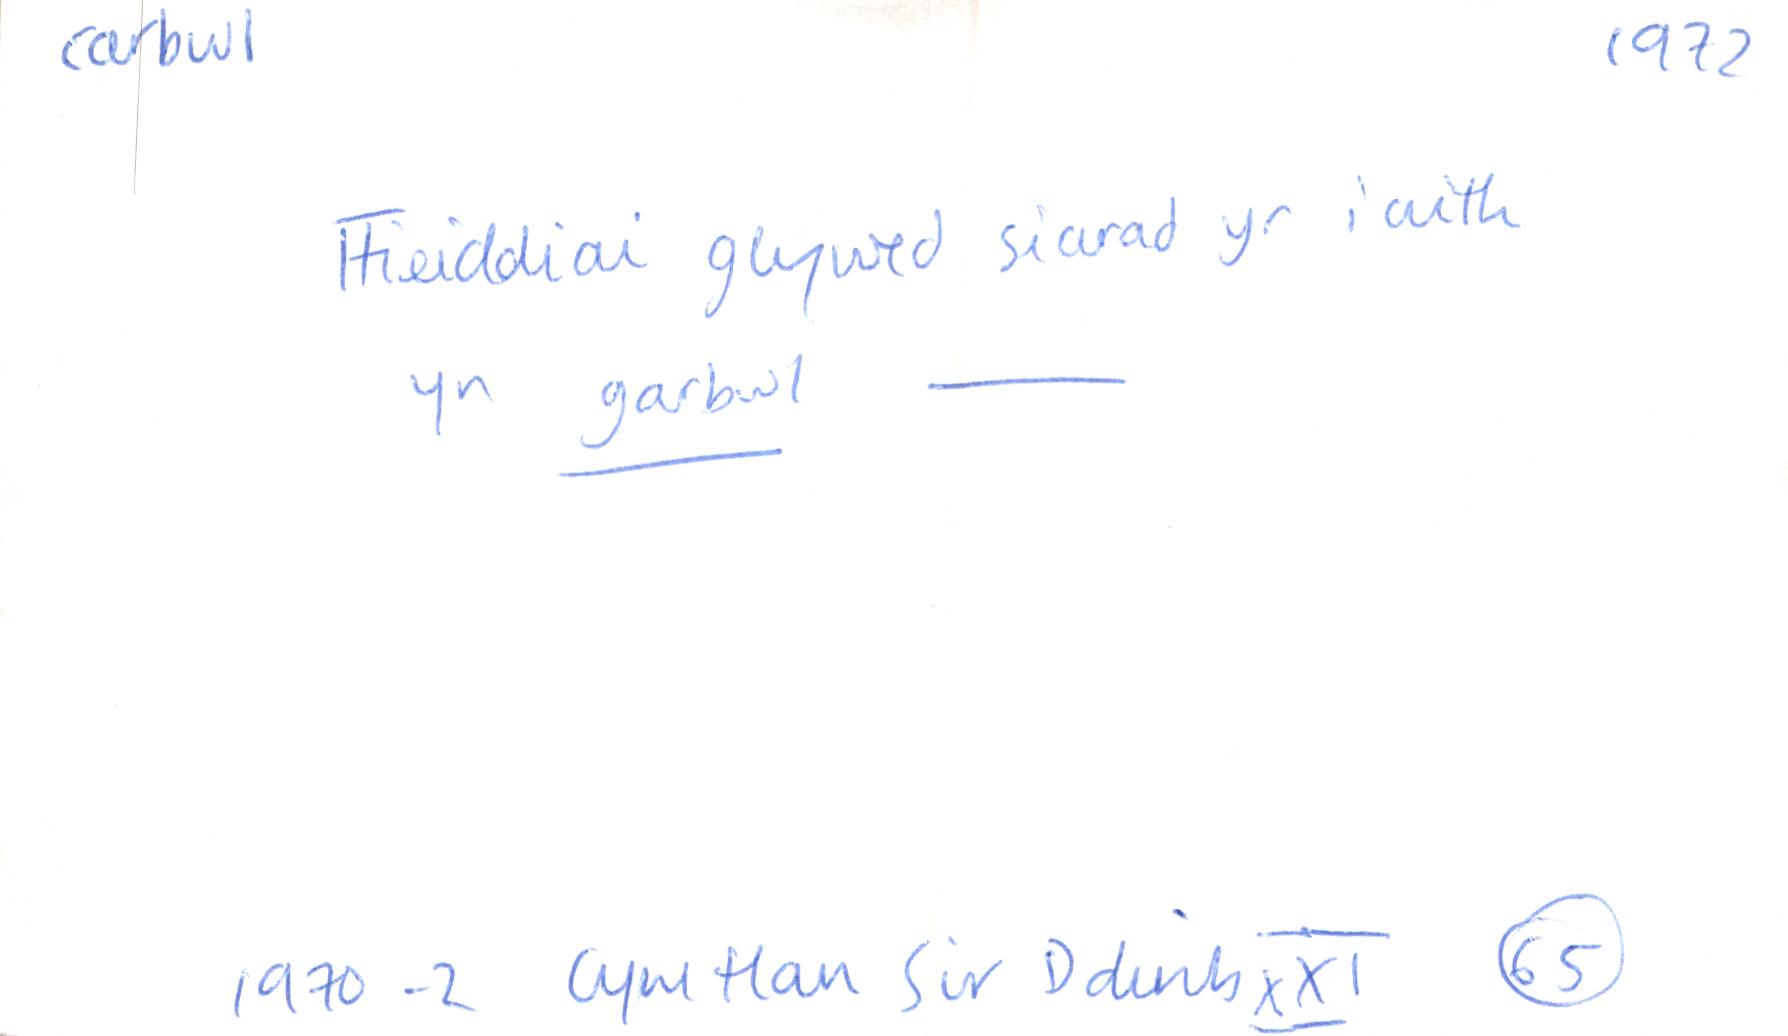 carbwl 1972
Ffieiddiai glywed siarad yr iaith
yn garbwl ——
1970-2 Cym Han Sir Ddinb XXI 65